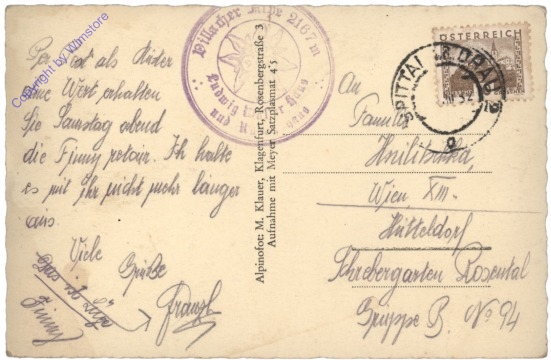 Copyright by Winstore
als
Wert erhalten
Sie Samstag abend
die Finny retour. Ich halte
es mit Ihr nicht mehr länger
aus.
Viele
Grüße
Franzl
Das ist Lüge
Finny
Villacher Alpe 2167 m
Ludwig Haus
und
Alpinofot: M. Klauer, Klagenfurt, Rosenbergstraße 3
Aufnahme mit Meyer Satzplasmat 4'5
ÖSTERREICH
SPITTAL A. D. DRAU
An
Familie
Wien XIII.
Hütteldorf
Schrebergarten Rosental
Gruppe B. No 94